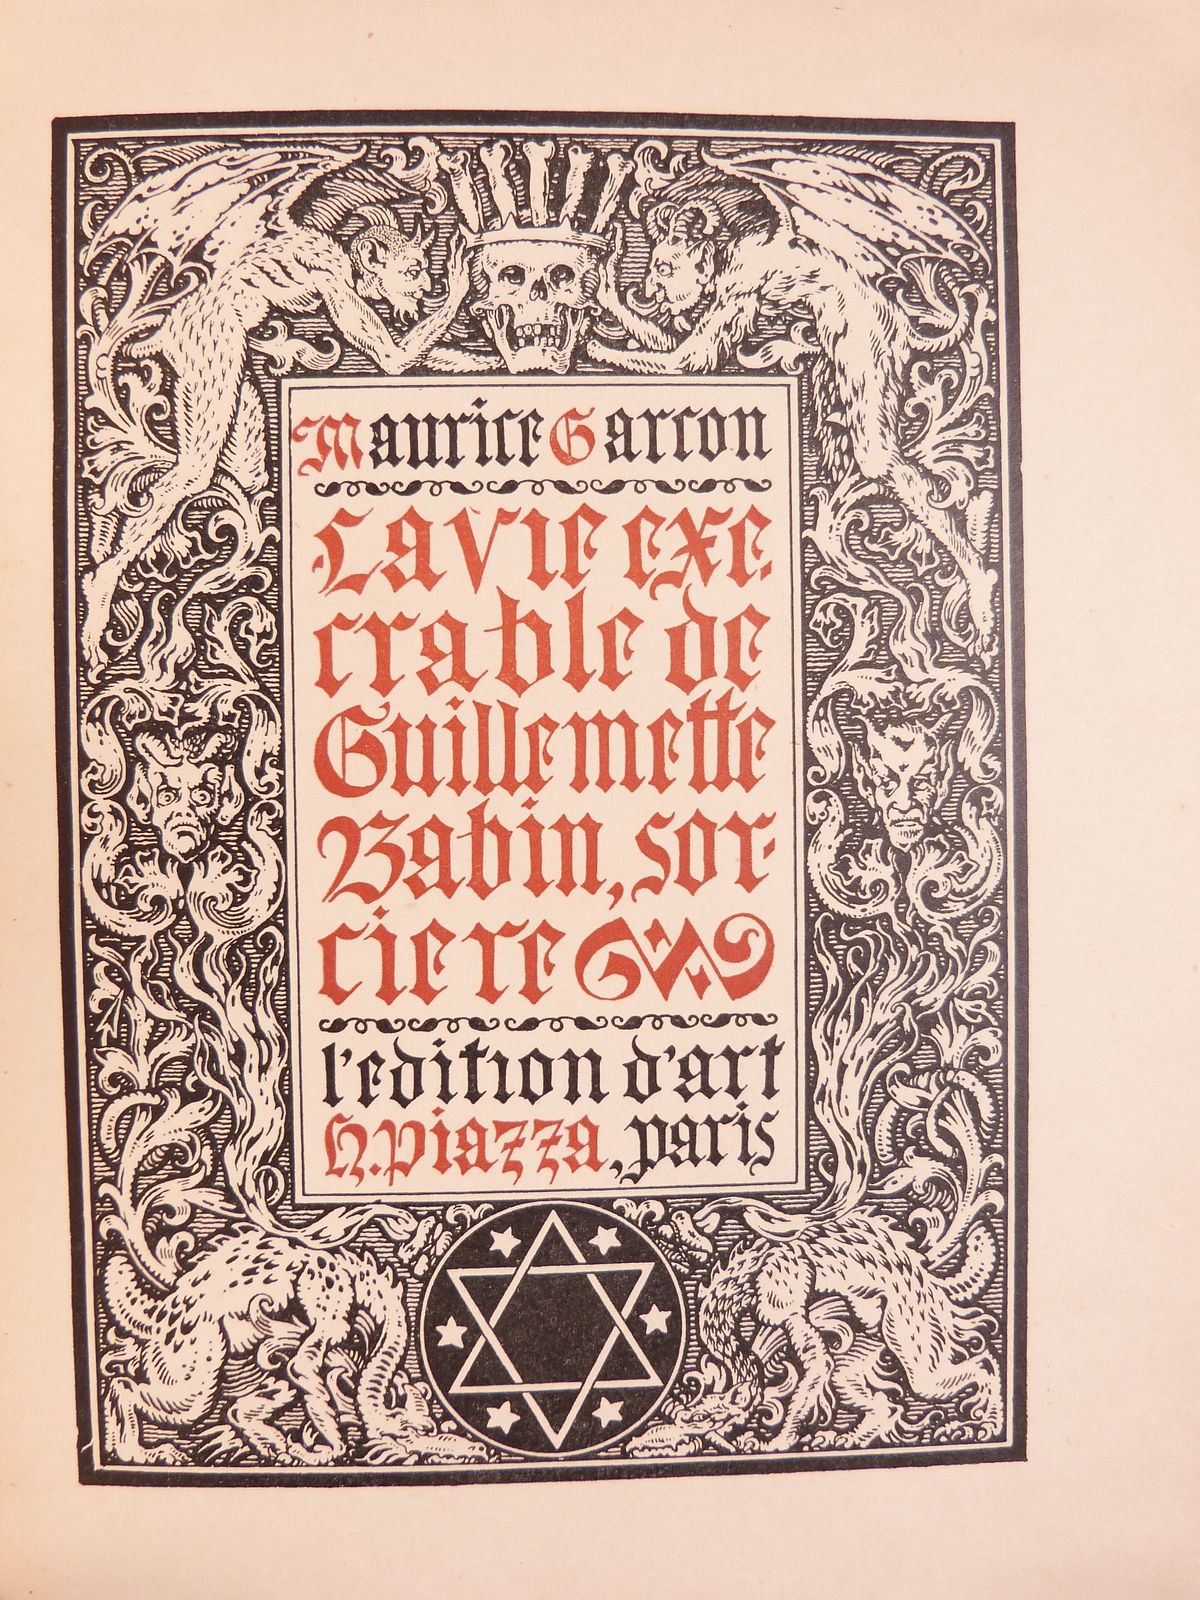 Maurice Garcon
La vie exe-
crable de
Guillemette
Babin, sor-
ciere
l'edition d'art
H. piazza, paris